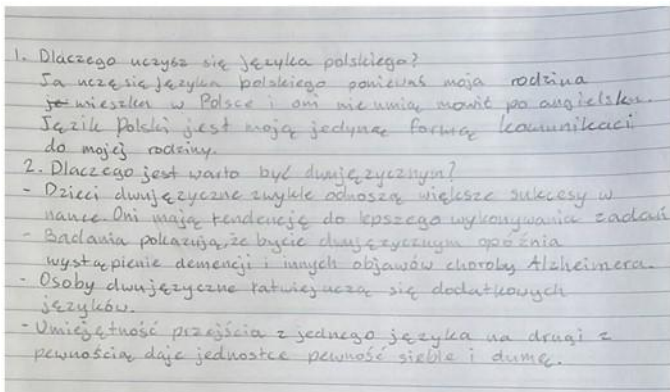 1. Dlaczego uczysz się języka polskiego?
Ja uczę się języka polskiego poniewaś moja rodzina
je mieszka w Polsce i oni nie umią mowit po angielsku.
Jęzik Polski jest moją jedynąę formą komunikacii
do mojej rodziny.
2. Dlaczego jest warto być dwujęzycznym?
- Dzieci dwujęzyczne zwykle odnoszą większe sukcesy w
nauce. Oni mają tendencję do lepszego wykonywania zadań
- Badania pokazują, że bycie dwujęzycznym opóźnia
wystąpienie demencji i innych objawów choroby Alzheimera.
- Osoby dwujęzyczne łatwiej uczą się dodatkowych
języków.
- Umiejętność przejścia z jednego języka na drugi z
pewnością daje jednostce pewność siebie i dumę.